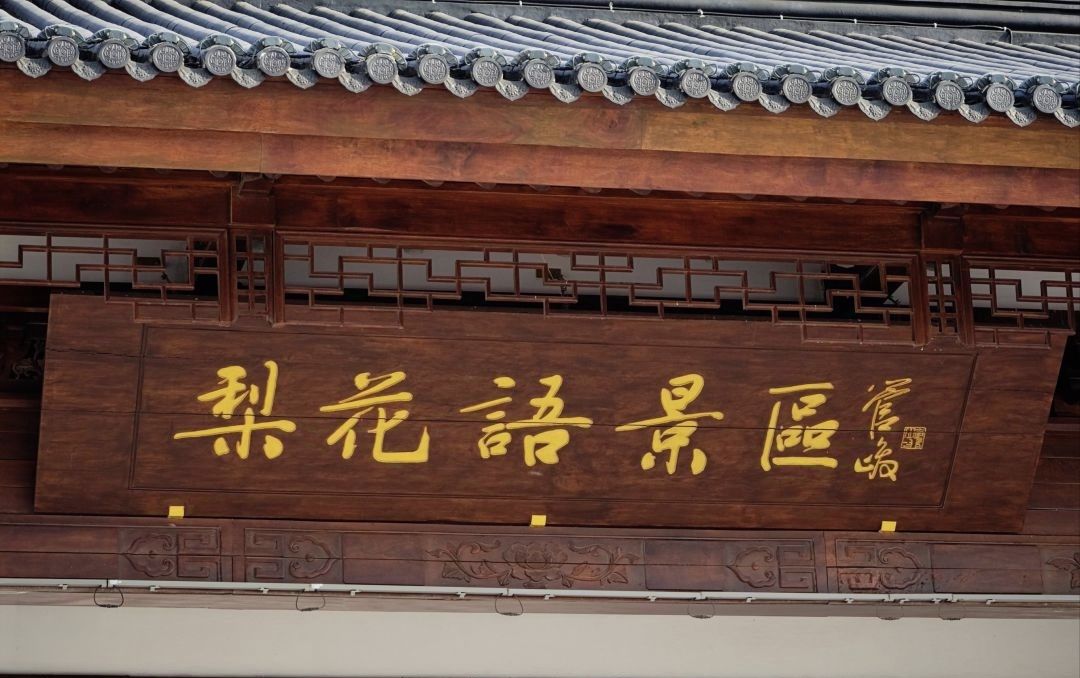 梨花語景區
管峻